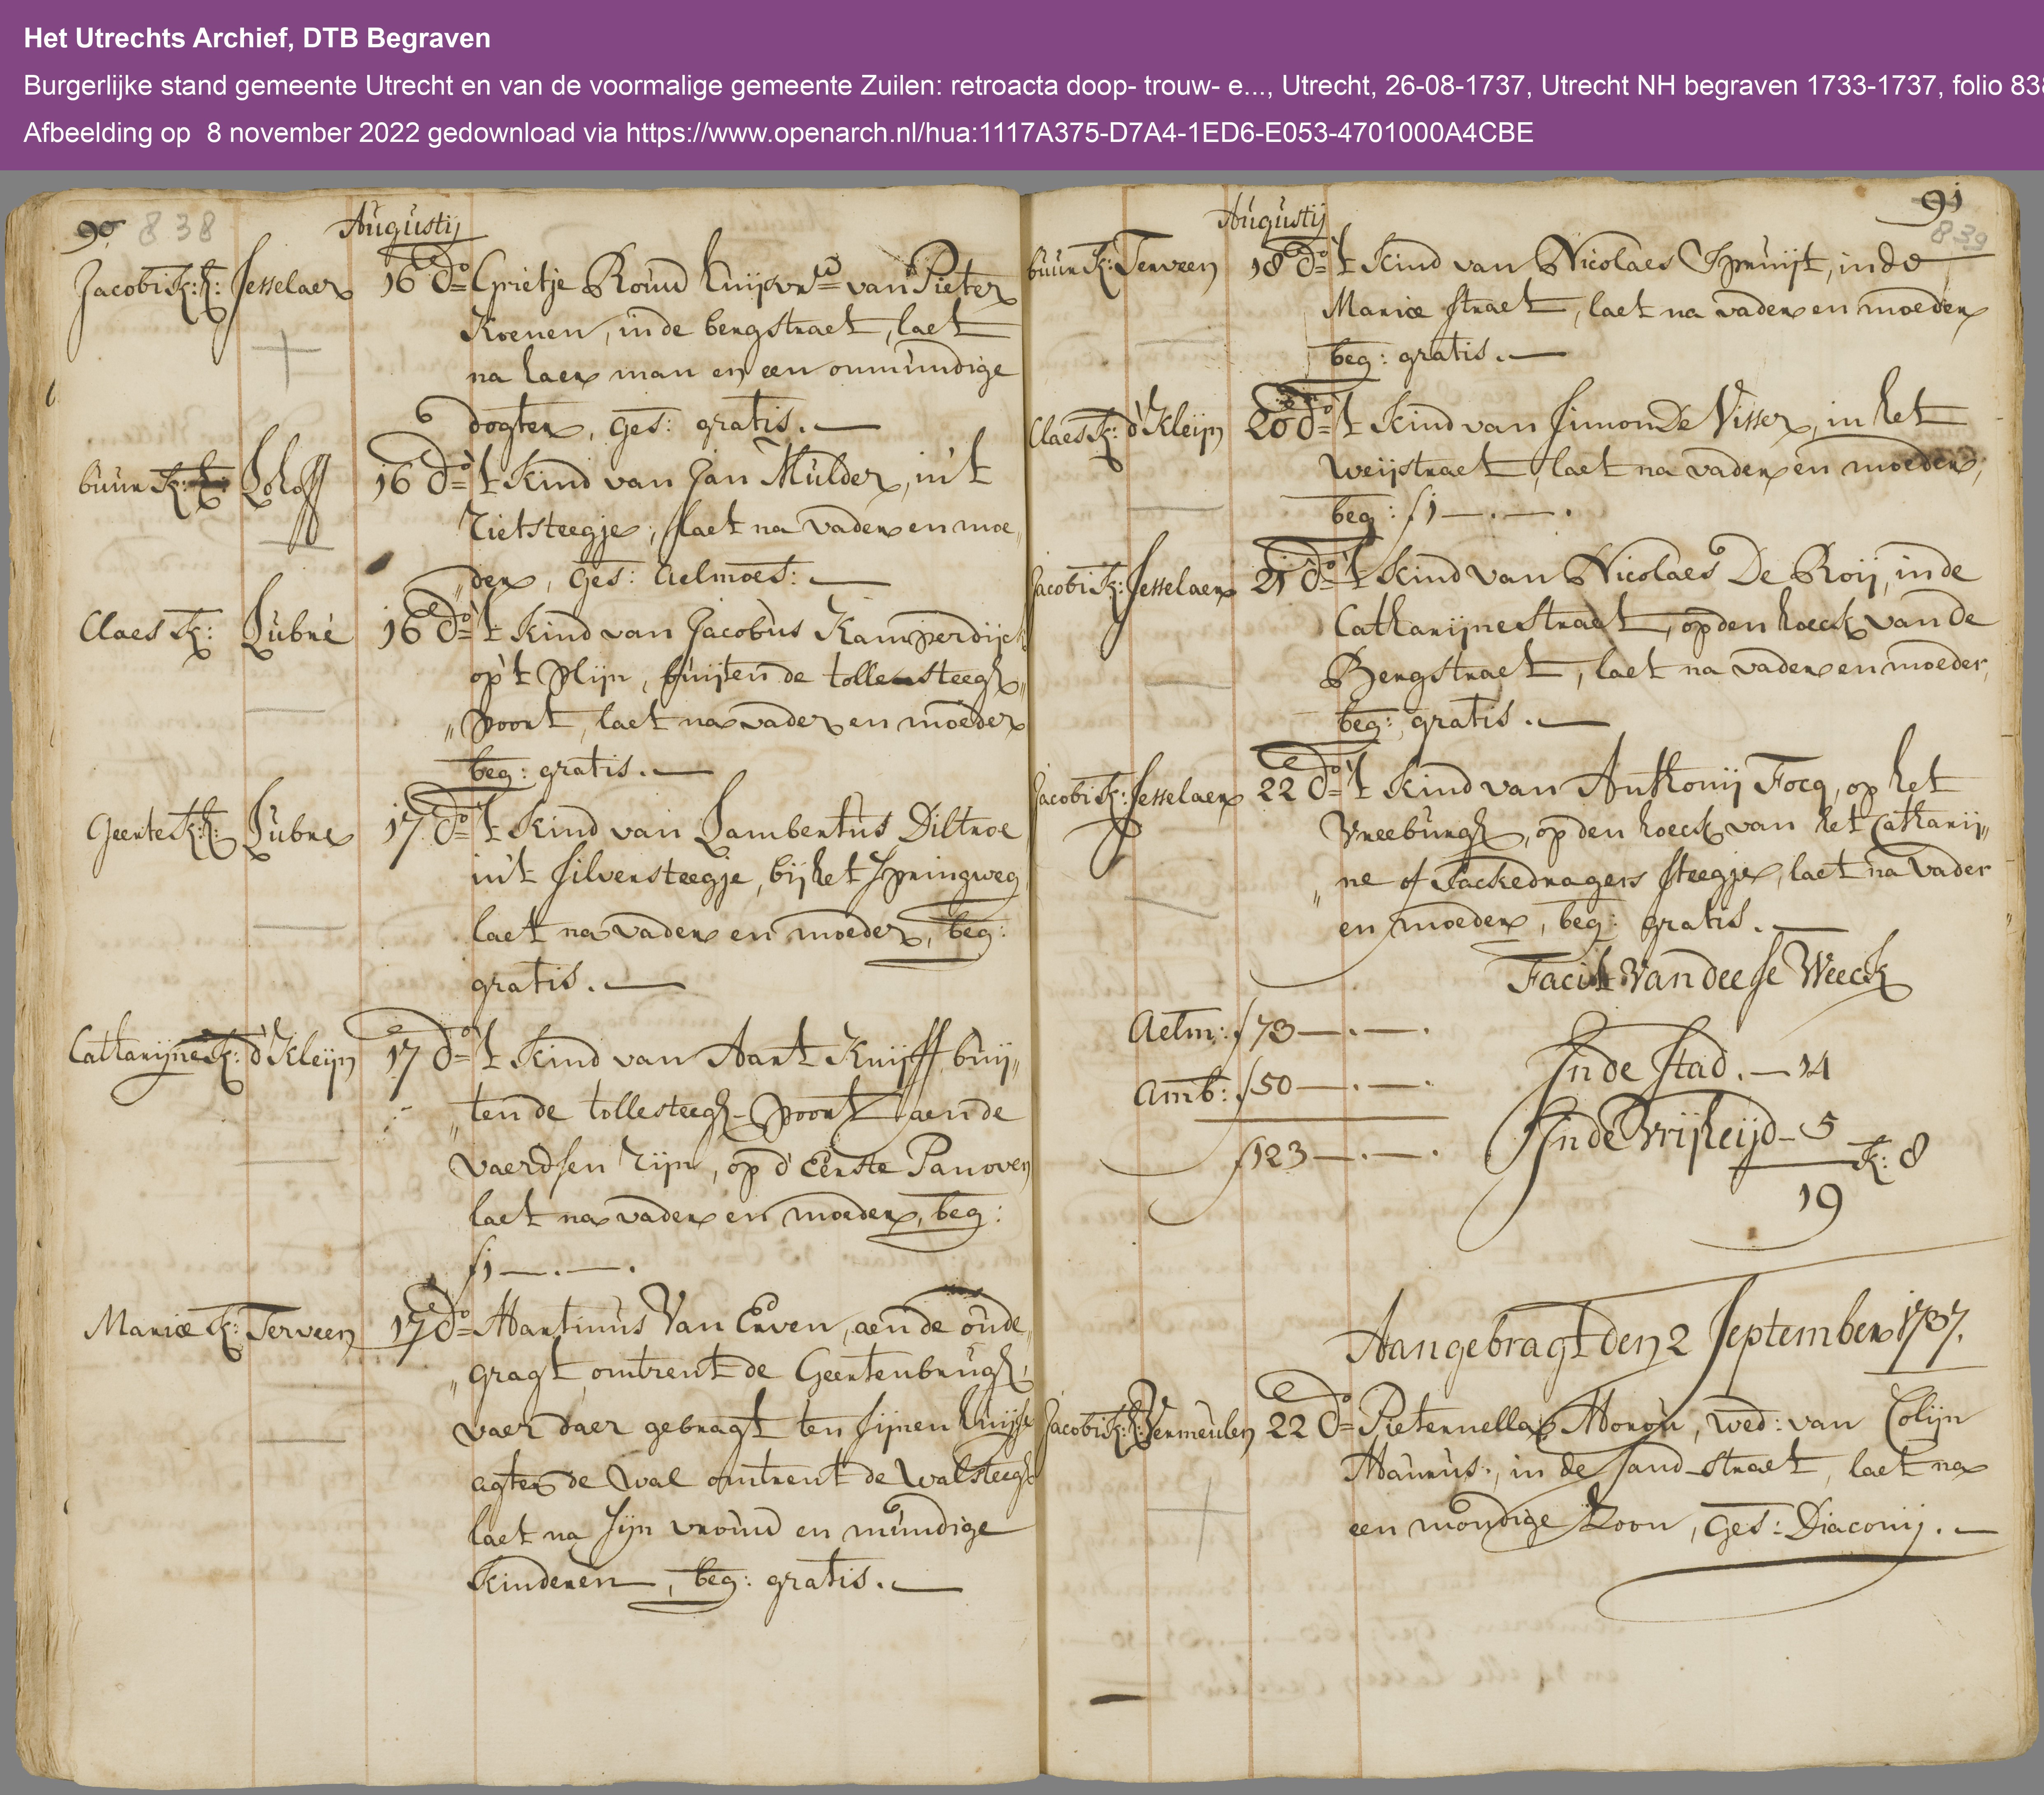 Het Utrechts Archief, DTB Begraven
Burgerlijke stand gemeente Utrecht en van de voormalige gemeente Zuilen: retroacta doop- trouw- e..., Utrecht, 26-08-1737, Utrecht NH begraven 1733-1737, folio 838
Afbeelding op 8 november 2022 gedownload via https://www.openarch.nl/hua:1117A375-D7A4-1ED6-E053-4701000A4CBE
90 838
Augustij
Jacobi K: k: Jesselaer 16 do= Grietje Round huijsvrw van Pieter
Koenen, in de bergstraet, laet
na haer man en een onmundige
dogter, ges: gratis.
buur K: Lohoff 16 do= 't kind van Jan Mulder, in 't
Rietsteegje, laet na vader en moe„
„der, ges: aelmoes:
Claes K: Lubré 16 do= 't kind van Jacobus Kamperdijck
op 't Plijn, buijten de tollesteegh„
„poort, laet na vader en moeder
beg: gratis.
Geerte K: k: Lubre 17 do= 't kind van Lambertus Diltroe
in 't silversteegje, bij het springweg,
laet na vader en moeder, beg:
gratis.
Catharijne K: d'Kleijn 17 do= 't kind van Aart Kuijff buij„
„ten de tollesteegh-poort aen de
vaerdsen Rijn, op d'Eerste Panoven
laet na vader en moeder, beg:
f1 —.—.
Mariæ K: Terveen 17 do= Martinus Van Erven, aen de oude„
„gragt omtrent de Geertenbrugh,
vaer daer gebragt ten sijnen huijse
agter de wal omtrent de walsteegh
laet na sijn vrouw en mundige
kinderen, beg: gratis.
91
839
Augustij
buur K: Terveen 18 do= 't kind van Nicolaes Spruijt, in de
Mariæ straet, laet na vader en moeder
beg: gratis.
Claes K: d'Kleijn 20 do= 't kind van Simon De Visser, in het
weijstraet, laet na vader en moeder,
beg: f1 —.—.
Jacobi K: Jesselaer 21 do= 't kind van Nicolaes De Roij, in de
Catharijnestraet, op den hoeck van de
Bergstraet, laet na vader en moeder,
beg: gratis.
Jacobi K: Jesselaer 22 do= 't kind van Anthonij Focq, op het
Vreeburgh, op den hoeck van het Catharij„
„ne of Sackedragers steegje, laet na vader
en moeder, beg: gratis.
Facit Van deese Weeck
Aelm: f73 —.—.
In de stad. — 14
Amb: f50 —.—.
In de Vrijheijd — 5
K: 8
f123 —.—.
19
Aangebragt den 2 September 1737.
Jacobi K: k: Vermeulen 22 do= Pieternella Morou, wed: van Colijn
Maurus:, in de sand-straet, laet na
een mondige zoon, ges: Diaconij.